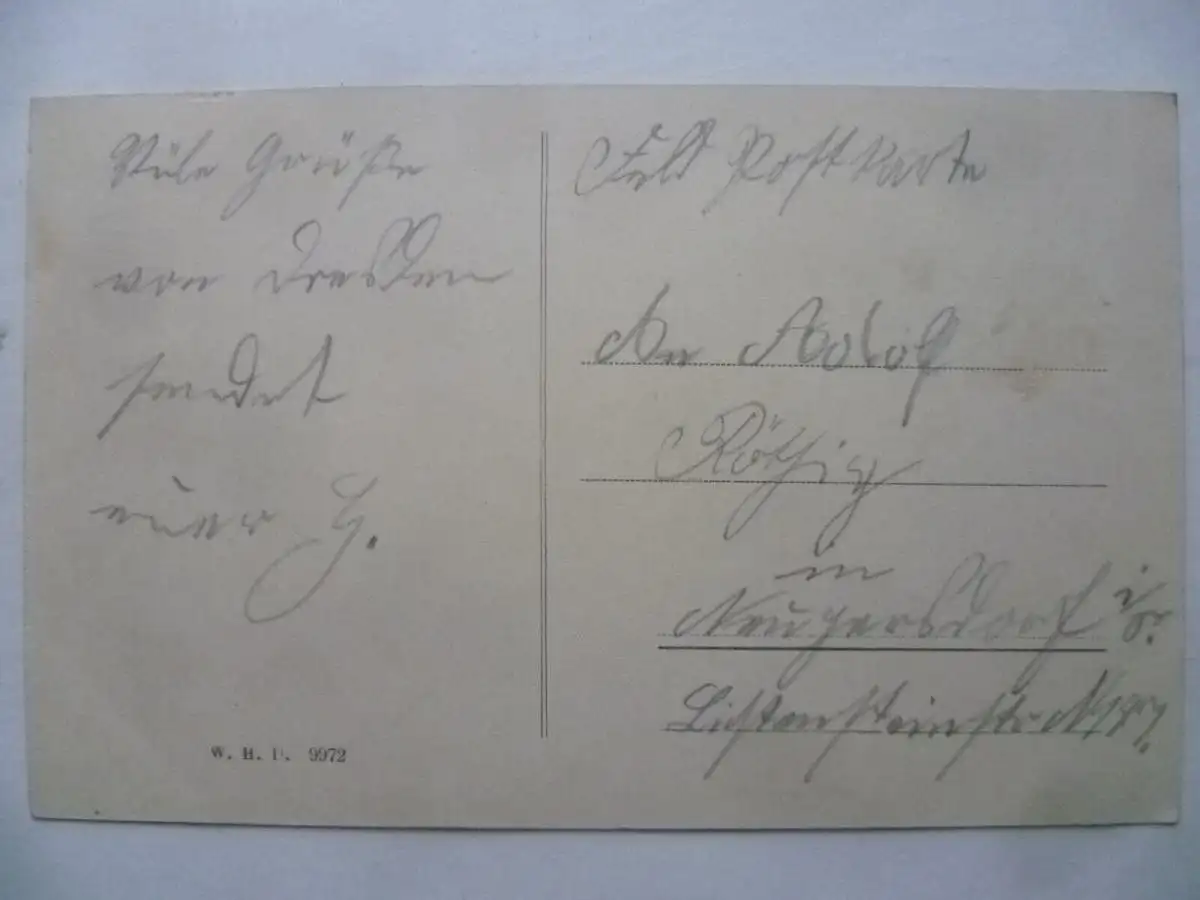 Viele Grüße
von Dresden
sendet
euer G.
W. H. D. 9972
Feld Postkarte
An Adolf
Röthig
in
Neugersdorf i/S.
Lichtensteinstr. N